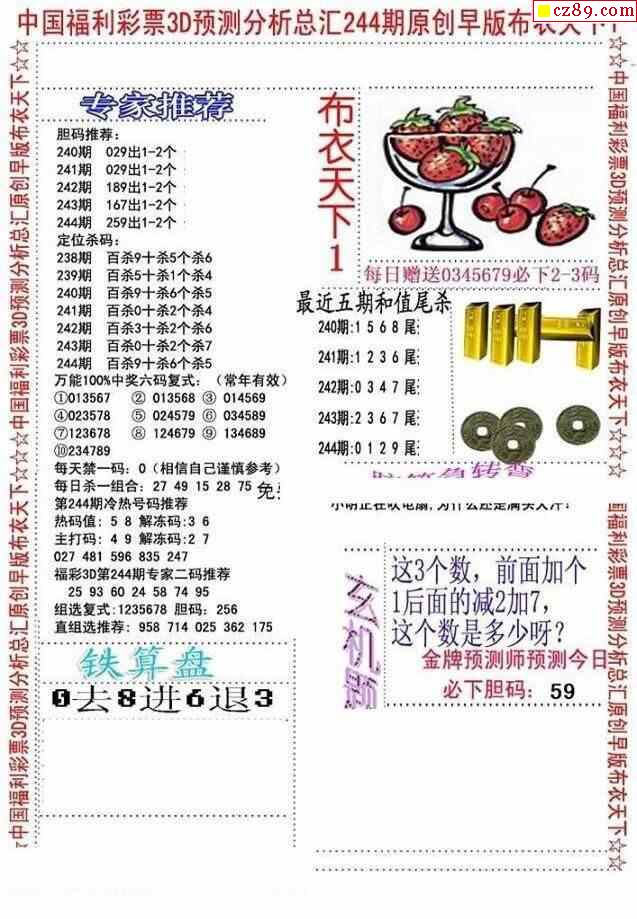 cz89.com
中国福利彩票3D预测分析总汇244期原创早版布衣天下1
中国福利彩票3D预测分析总汇原创早版布衣天下☆☆
☆☆中国福利彩票3D预测分析总汇原创早版布衣天下☆☆
中国福利彩票3D预测分析总汇原创早版布衣天下☆☆
中国福利彩票3D预测分析总汇原创早版布衣天下☆☆
专家推荐
胆码推荐：
240期 029出1-2个
241期 029出1-2个
242期 189出1-2个
243期 167出1-2个
244期 259出1-2个
定位杀码：
238期 百杀9十杀5个杀6
239期 百杀5十杀1个杀4
240期 百杀9十杀6个杀5
241期 百杀0十杀2个杀4
242期 百杀3十杀2个杀6
243期 百杀0十杀2个杀7
244期 百杀9十杀6个杀5
万能100%中奖六码复式：（常年有效）
①013567 ② 013568 ③ 014569
④023578 ⑤ 024579 ⑥ 034589
⑦123678 ⑧ 124679 ⑨ 134689
⑩234789
每天禁一码：0（相信自己谨慎参考）
每日杀一组合：27 49 15 28 75 免
第244期冷热号码推荐
热码值：5 8 解冻码:3 6
主打码：4 9 解冻码:2 7
027 481 596 835 247
福彩3D第244期专家二码推荐
25 93 60 24 58 74 95
组选复式:1235678 胆码：256
直组选推荐: 958 714 025 362 175
铁算盘
0去8进6退3
布衣天下1
每日赠送0345679必下2-3码
最近五期和值尾杀
240期:1 5 6 8 尾
241期:1 2 3 6 尾
242期:0 3 4 7 尾
243期:2 3 6 7 尾
244期:0 1 2 9 尾
脑筋急转弯
小明正在吹电扇,为什么还是满头大汗?
玄机题
这3个数，前面加个
1后面的减2加7，
这个数是多少呀？
金牌预测师预测今日
必下胆码： 59